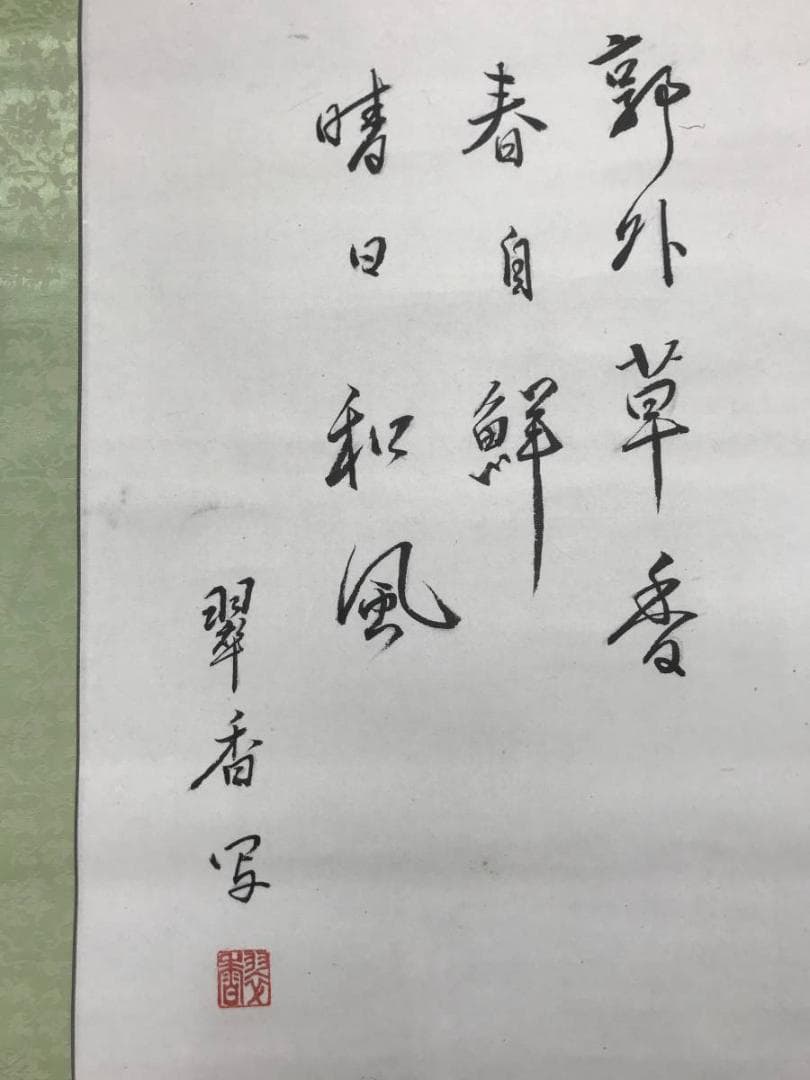 郭外草香
春自鮮
晴日和風
翠香写
翠香